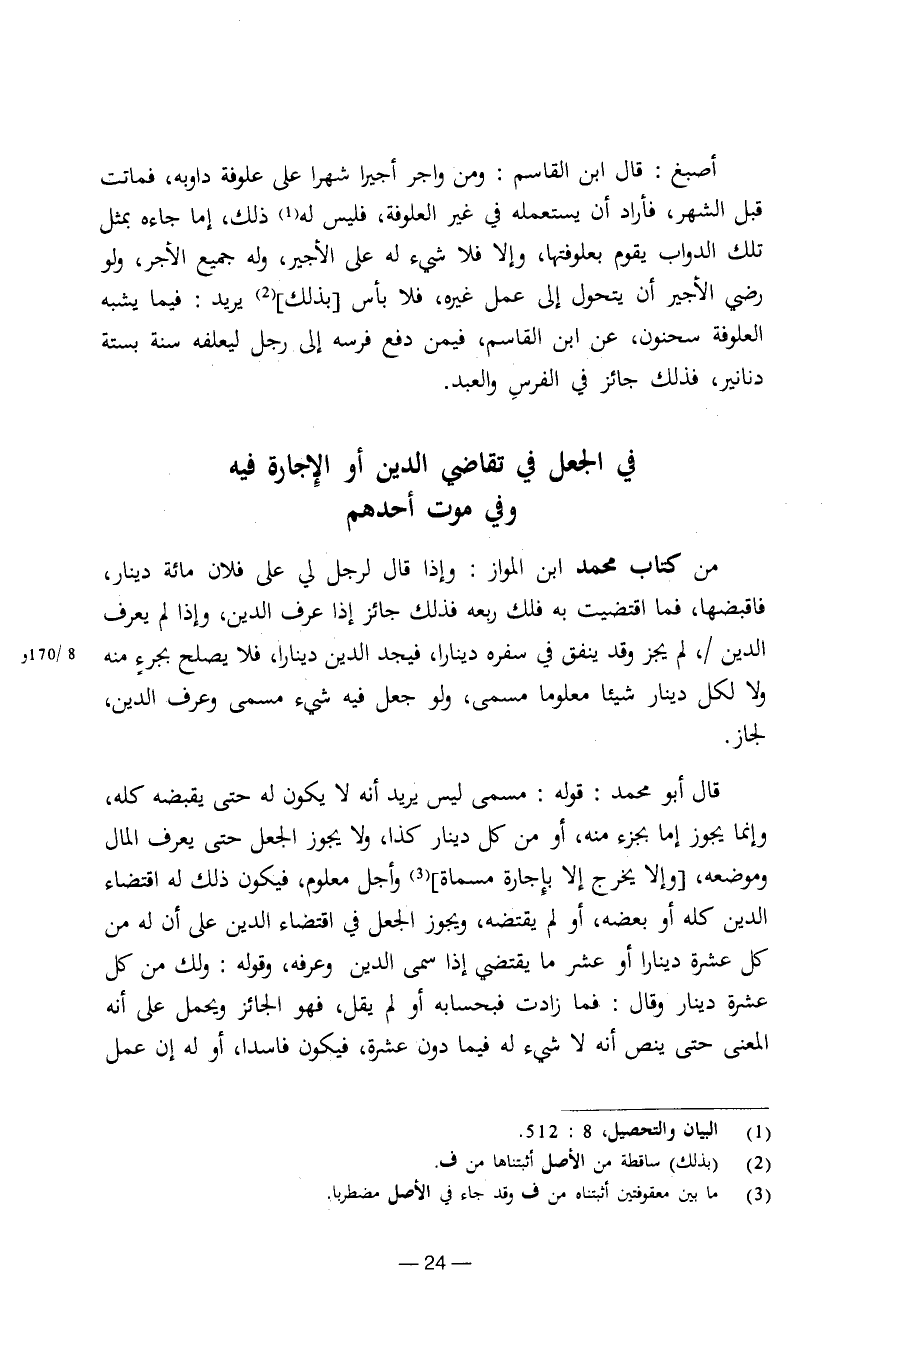 أصبغ : قال ابن القاسم : ومن واجر أجيرا شهرا على علوفة داوبه، فماتت
قبل الشهر، فأراد أن يستعمله في غير العلوفة، فليس له(1) ذلك، إما جاءه بمثل
تلك الدواب يقوم بعلوفتها، وإلا فلا شيء له على الأجير، وله جميع الأجر، ولو
رضي الأجير أن يتحول إلى عمل غيره، فلا بأس [بذلك](2) يريد : فيما يشبه
العلوفة سحنون، عن ابن القاسم، فيمن دفع فرسه إلى رجل ليعلفه سنة بستة
دنانير، فذلك جائز في الفرسِ والعبد.
في الجعل في تقاضي الدين أو الإجارة فيه
وفي موت أحدهم
من كتاب محمد ابن المواز : وإذا قال لرجل لي على فلان مائة دينار،
فاقبضها، فما اقتضيت به فلك ربعه فذلك جائز إذا عرف الدين، وإذا لم يعرف
الدين /، لم يجز وقد ينفق في سفره دينارا، فيجد الدين دينارا، فلا يصلح بجزءٍ منه
8 /170و
ولا لكل دينار شيئا معلوما مسمى، ولو جعل فيه شيء مسمى وعرف الدين،
لجاز.
قال أبو محمد : قوله : مسمى ليس يريد أنه لا يكون له حتى يقبضه كله،
وإنما يجوز إما بجزء منه، أو من كل دينار كذا، ولا يجوز الجعل حتى يعرف المال
وموضعه، [وإلا يخرج إلا بإجارة مسماة](3) وأجل معلوم، فيكون ذلك له اقتضاء
الدين كله أو بعضه، أو لم يقتضه، ويجوز الجعل في اقتضاء الدين على أن له من
كل عشرة دينارا أو عشر ما يقتضي إذا سمى الدين وعرفه، وقوله : ولك من كل
عشرة دينار وقال : فما زادت فبحسابه أو لم يقل، فهو الجائز ويحمل على أنه
المعنى حتى ينص أنه لا شيء له فيما دون عشرة، فيكون فاسدا، أو له إن عمل
(1) البيان والتحصيل، 8 : 512.
(2) (بذلك) ساقطة من الأصل أثبتناها من ف.
(3) ما بين معقوفتين أثبتناه من ف وقد جاء في الأصل مضطربا.
— 24 —